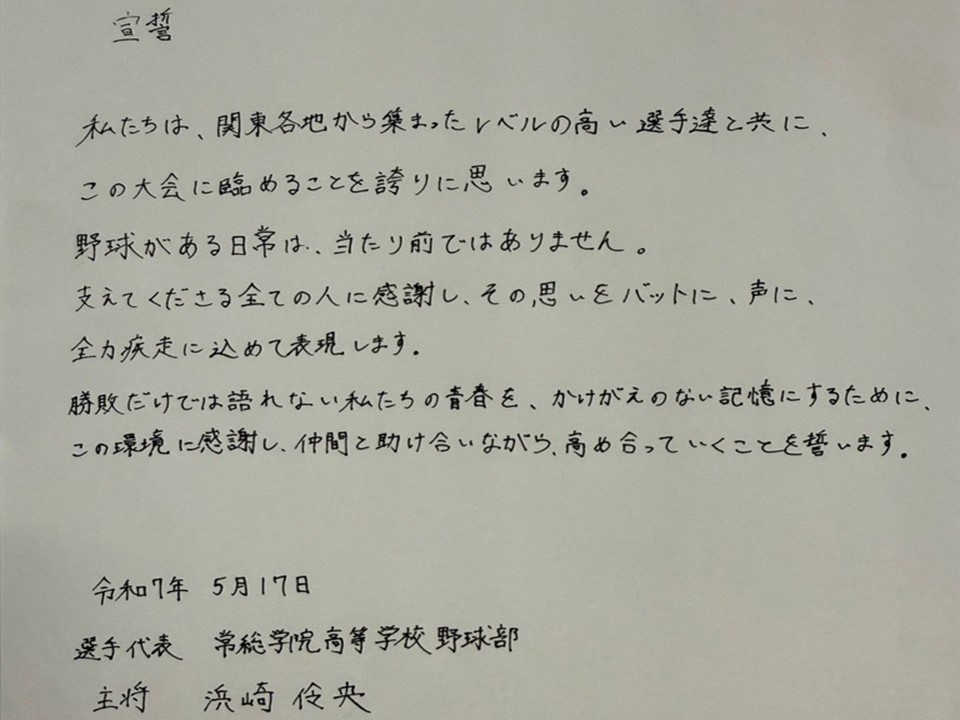 宣誓
私たちは、関東各地から集まったレベルの高い選手達と共に、
この大会に臨めることを誇りに思います。
野球がある日常は、当たり前ではありません。
支えてくださる全ての人に感謝し、その思いをバットに、声に、
全力疾走に込めて表現します。
勝敗だけでは語れない私たちの青春を、かけがえのない記憶にするために、
この環境に感謝し、仲間と助け合いながら、高め合っていくことを誓います。
令和7年 5月17日
選手代表 常総学院高等学校野球部
主将 浜崎 伶央